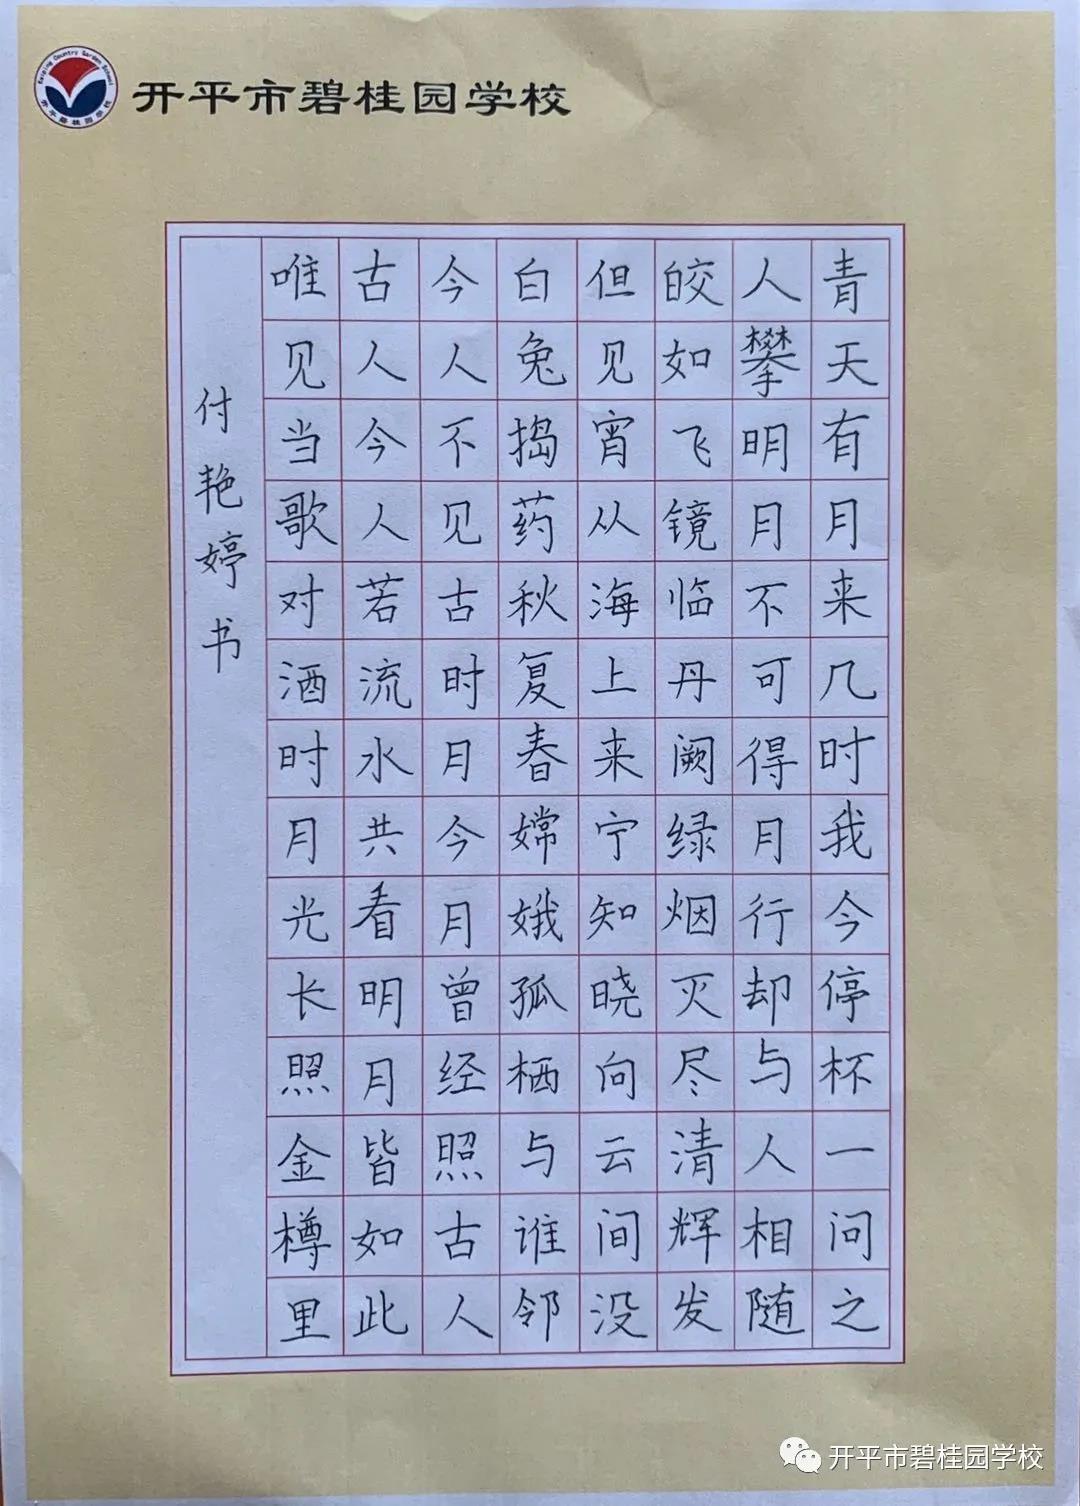 Kaiping Country Garden School
开平碧桂园学校
开平市碧桂园学校
青天有月来几时我今停杯一问之
人攀明月不可得月行却与人相随
皎如飞镜临丹阙绿烟灭尽清辉发
但见宵从海上来宁知晓向云间没
白兔捣药秋复春嫦娥孤栖与谁邻
今人不见古时月今月曾经照古人
古人今人若流水共看明月皆如此
唯见当歌对酒时月光长照金樽里
付艳婷书
开平市碧桂园学校